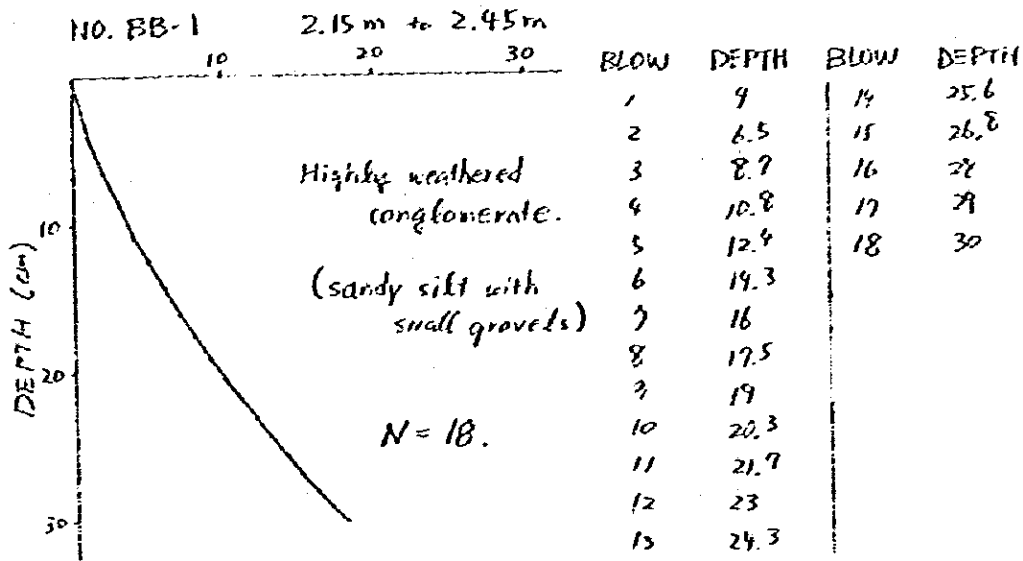 NO. BB-1 2.15 m to 2.45 m
10 20 30
DEPTH (cm)
10
20
30
Highly weathered
conglomerate.
(sandy silt with
small gravels)
N = 18.
BLOW DEPTH BLOW DEPTH
1 4 14 25.6
2 6.5 15 26.8
3 8.7 16 28
4 10.8 17 29
5 12.4 18 30
6 14.3
7 16
8 17.5
9 19
10 20.3
11 21.7
12 23
13 24.3